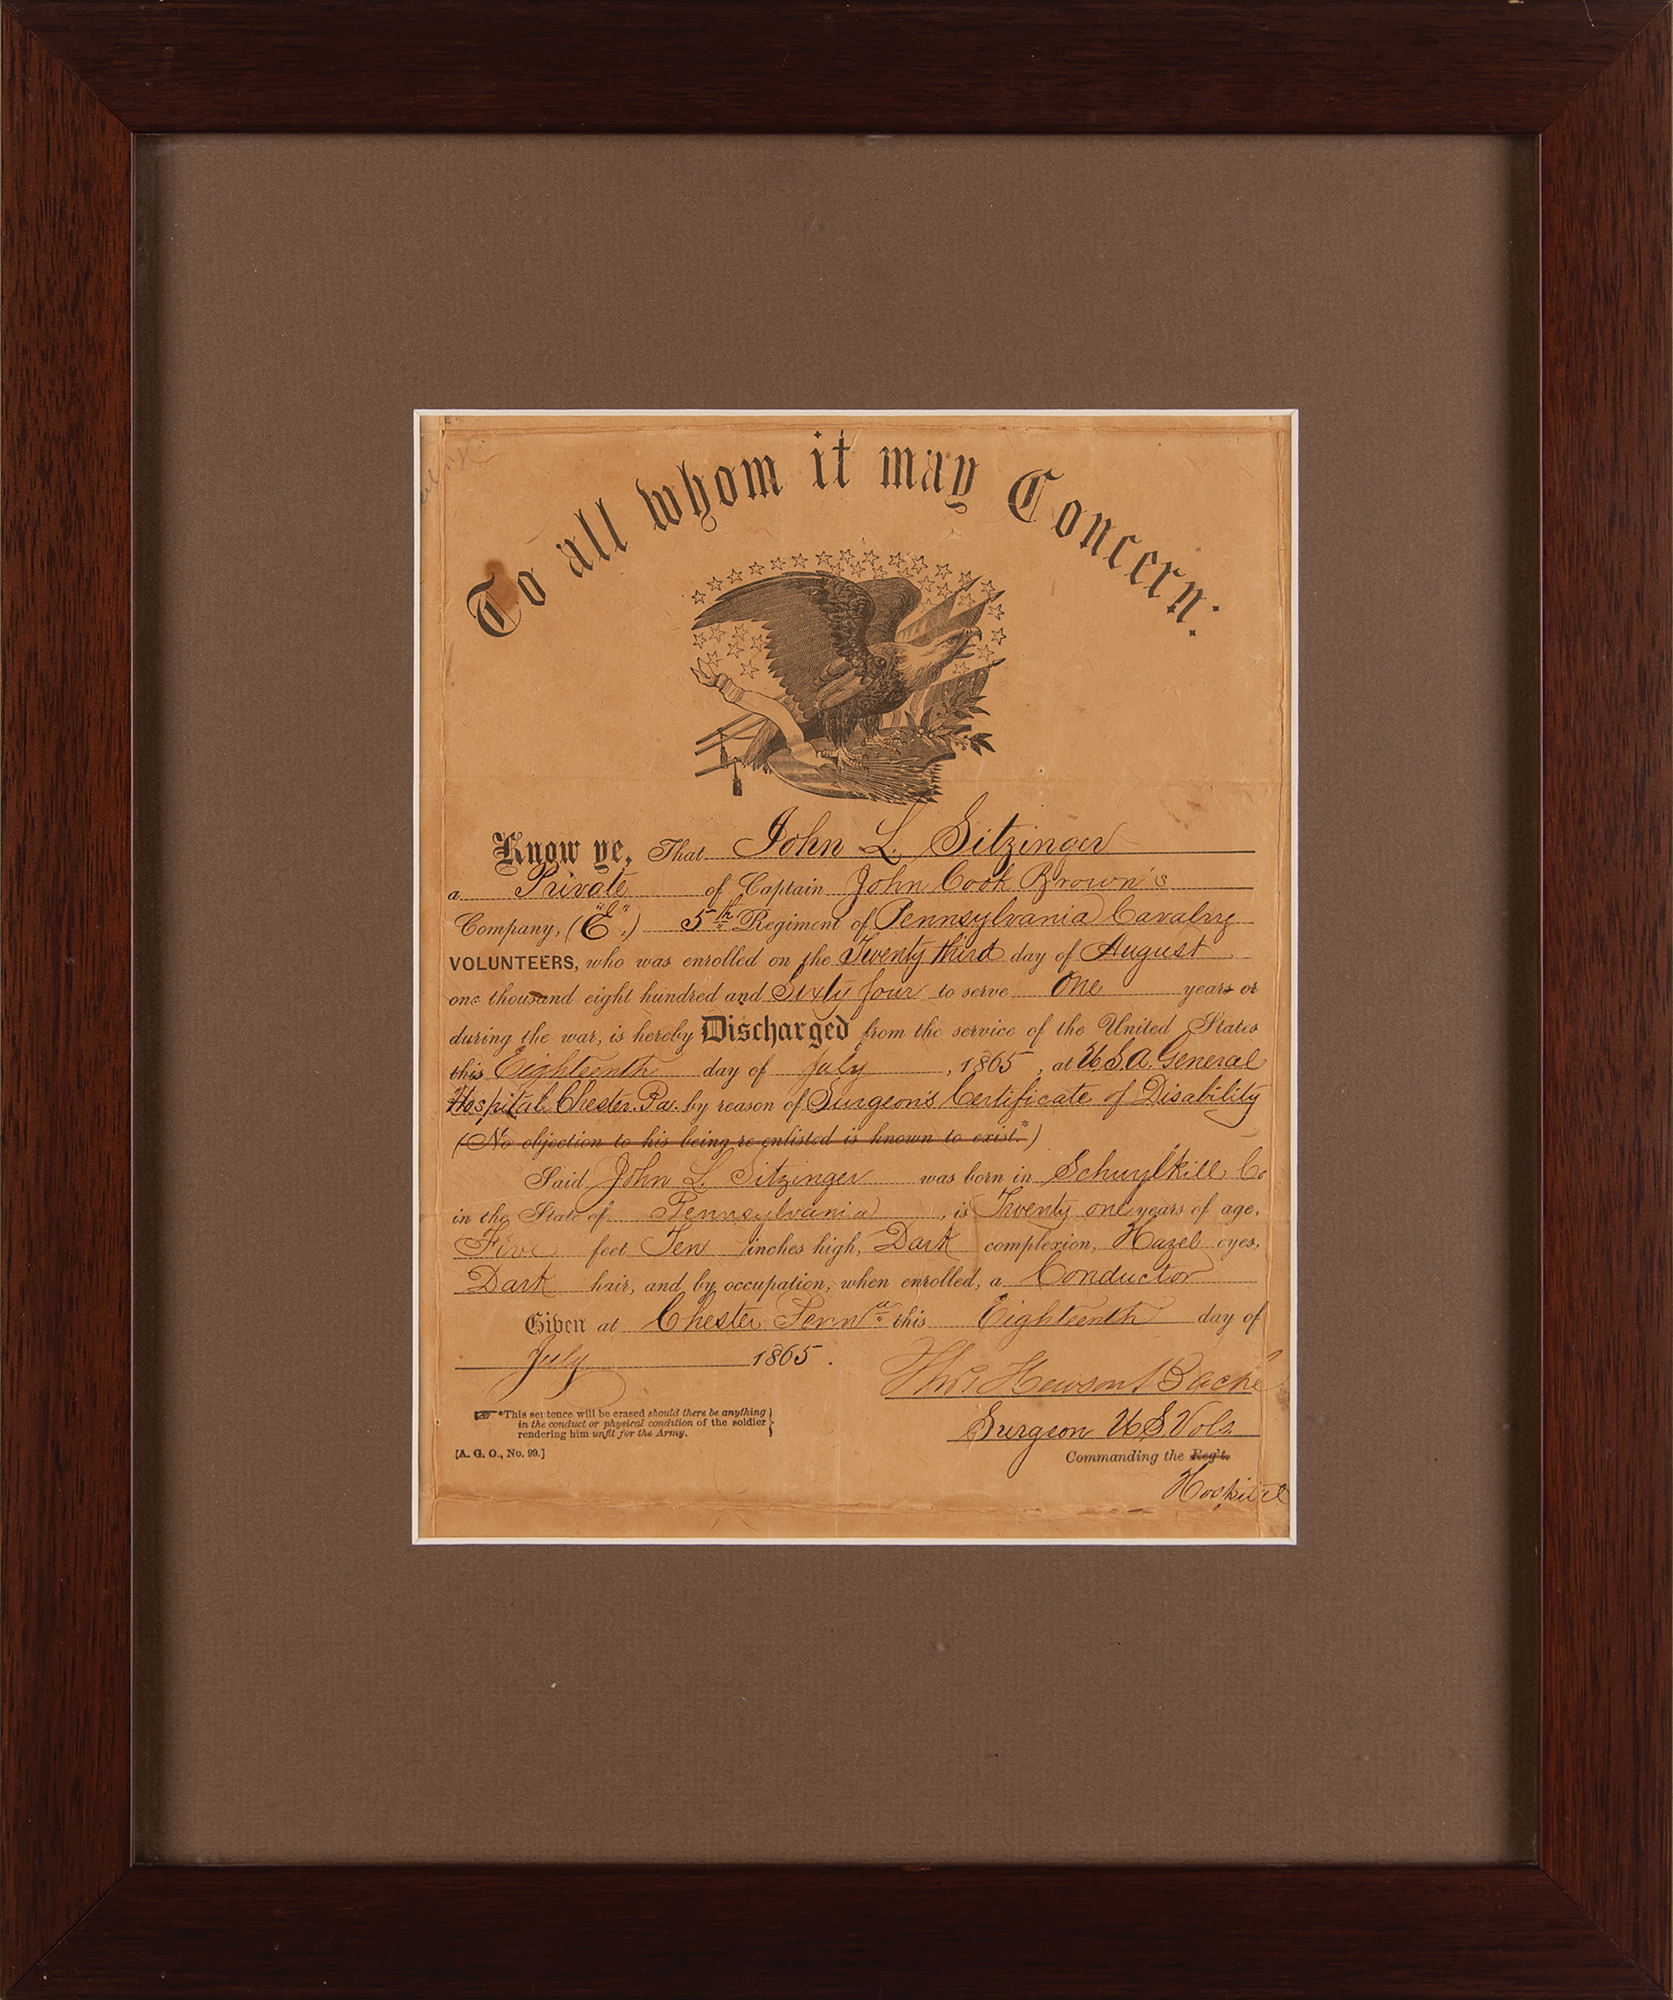 To all whom it may Concern:
Know ye, That John L. Sitzinger
a Private of Captain John Cook Brown's
Company, ("E",) 5th Regiment of Pennsylvania Cavalry
VOLUNTEERS, who was enrolled on the Twenty third day of August
one thousand eight hundred and Sixty four to serve One years or
during the war, is hereby Discharged from the service of the United States
this Eighteenth day of July, 1865, at U.S.A. General
Hospital Chester. Pa. by reason of Surgeon's Certificate of Disability
(No objection to his being re-enlisted is known to exist.*)
Said John L. Sitzinger was born in Schuylkill Co
in the State of Pennsylvania, is Twenty one years of age,
Five feet Ten inches high, Dark complexion, Hazel eyes,
Dark hair, and by occupation, when enrolled, a Conductor
Given at Chester Penna this Eighteenth day of
July 1865.
Thos Hewson Bache
Surgeon U.S. Vols
Commanding the Reg't.
Hospital
*This sentence will be erased should there be anything
in the conduct or physical condition of the soldier
rendering him unfit for the Army.
[A. G. O., No. 99.]